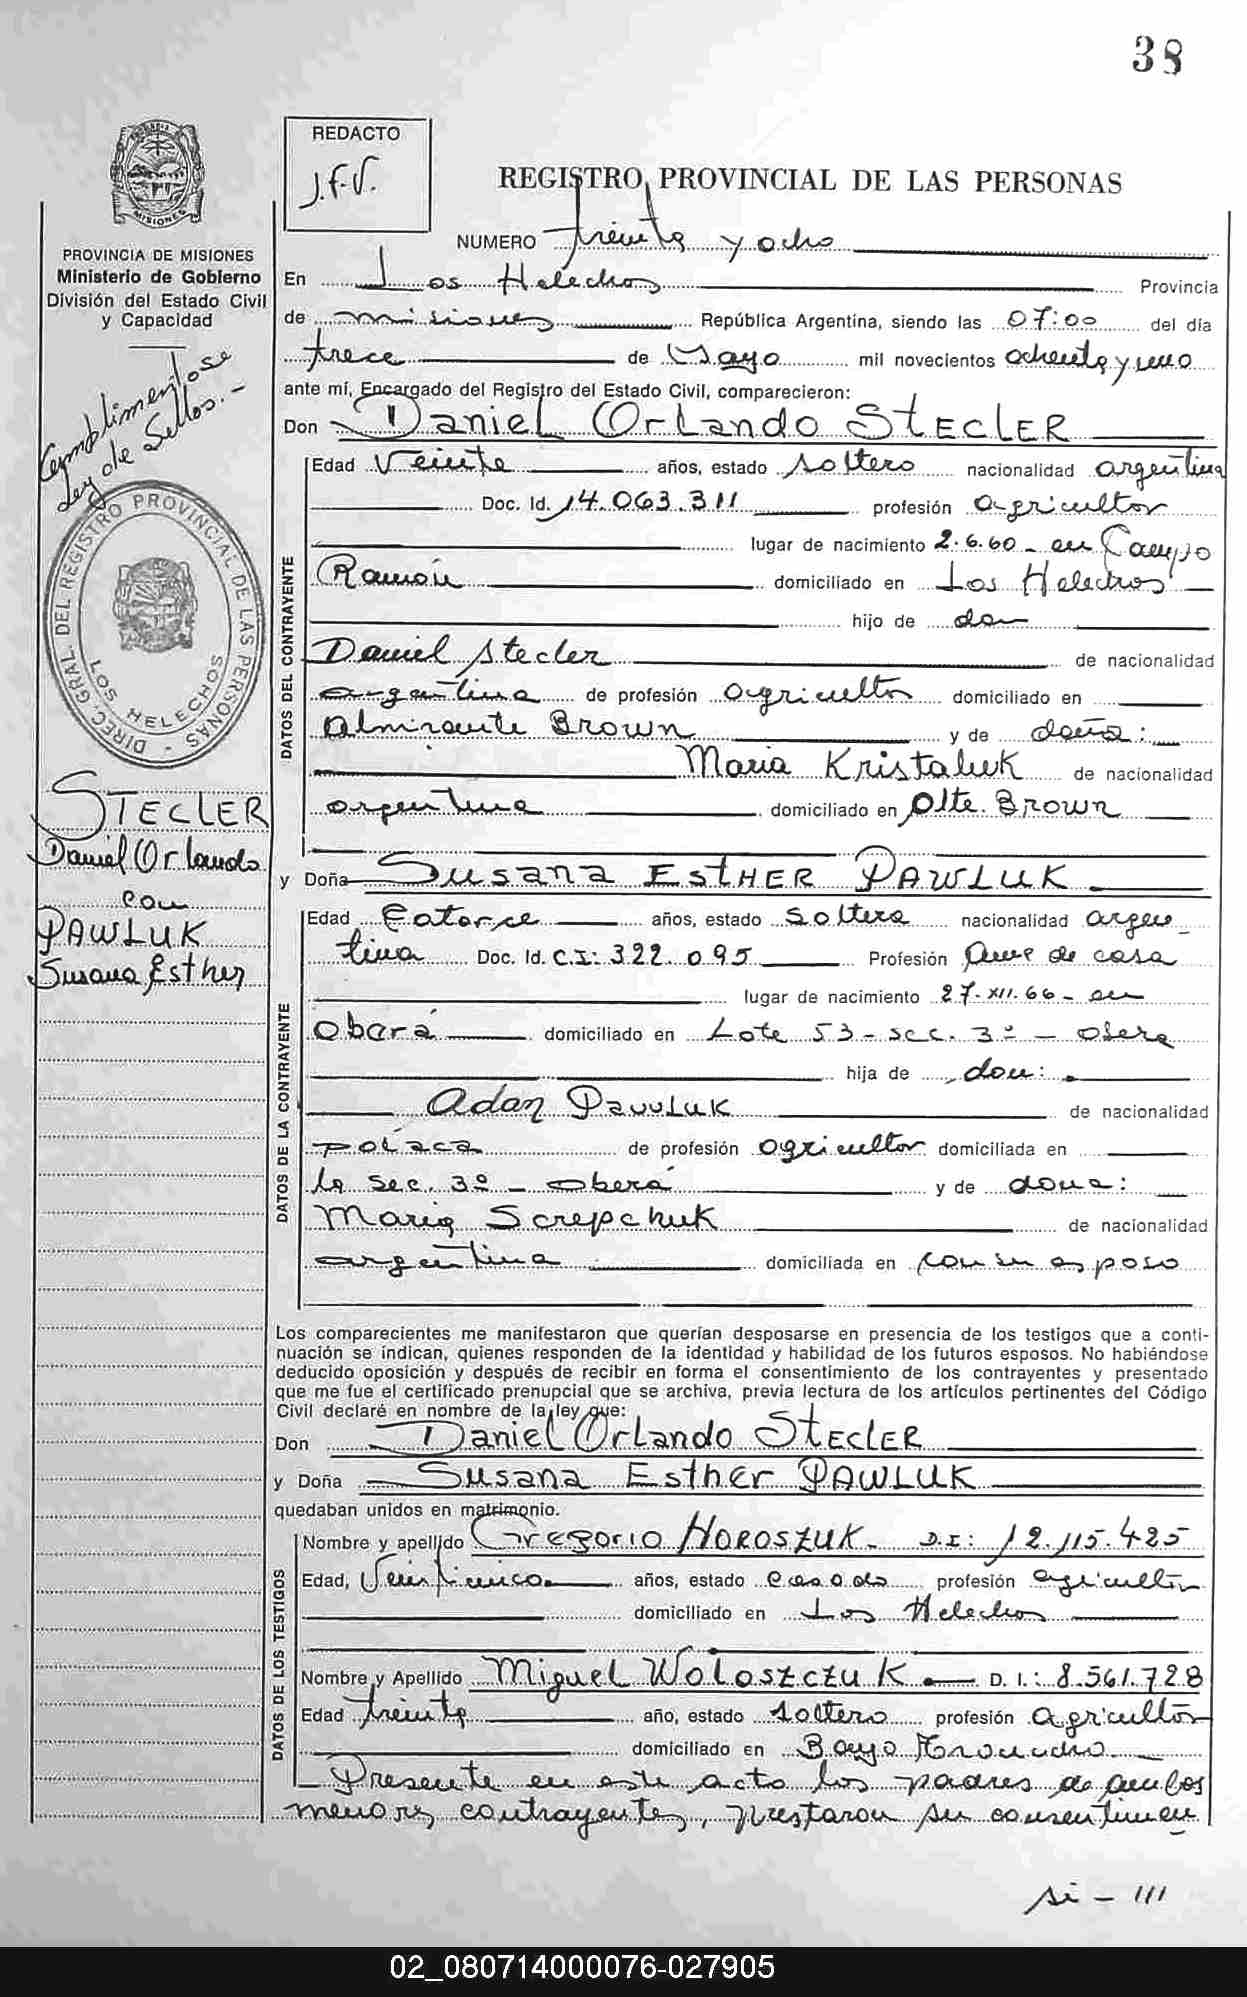 38
REDACTO
J.F.V.
MISIONES
REGISTRO PROVINCIAL DE LAS PERSONAS
NUMERO treinta y ocho
PROVINCIA DE MISIONES
Ministerio de Gobierno
División del Estado Civil
y Capacidad
Cumplimentose
Ley de Sellos.-
DIREC. GRAL. DEL REGISTRO PROVINCIAL DE LAS PERSONAS -
LOS HELECHOS
STECLER
Daniel Orlando
con
PAWLUK
Susana Esther
En Los Helechos Provincia
de misiones República Argentina, siendo las 07:00 del día
trece de Mayo mil novecientos ochenta y uno
ante mí, Encargado del Registro del Estado Civil, comparecieron:
Don Daniel Orlando STECLER
DATOS DEL CONTRAYENTE
Edad Veinte años, estado soltero nacionalidad argentina
Doc. Id. 14.063.311 profesión agricultor
lugar de nacimiento 2.6.60 - en Campo
Ramón domiciliado en Los Helechos
hijo de don
Daniel Stecler de nacionalidad
argentina de profesión agricultor domiciliado en
Almirante Brown y de doña:
Maria Kristaluk de nacionalidad
argentina domiciliado en Alte. Brown
y Doña Susana Esther PAWLUK
DATOS DE LA CONTRAYENTE
Edad Catorce años, estado soltera nacionalidad argen
tina Doc. Id. C.I: 322.095 Profesión Ama de casa
lugar de nacimiento 27.XII.66 - en
Oberá domiciliado en Lote 53 - sec. 3º - Oberá
hija de don:
Adan Pawluk de nacionalidad
polaca de profesión agricultor domiciliada en
la sec. 3º - Oberá y de dona:
Maria Screpchuk de nacionalidad
argentina domiciliada en con su esposo
Los comparecientes me manifestaron que querían desposarse en presencia de los testigos que a conti-
nuación se indican, quienes responden de la identidad y habilidad de los futuros esposos. No habiéndose
deducido oposición y después de recibir en forma el consentimiento de los contrayentes y presentado
que me fue el certificado prenupcial que se archiva, previa lectura de los artículos pertinentes del Código
Civil declaré en nombre de la ley que:
Don Daniel Orlando STECLER
y Doña Susana Esther PAWLUK
quedaban unidos en matrimonio.
DATOS DE LOS TESTIGOS
Nombre y apellido Gregorio HOROSZUK - D.I: 12.115.425
Edad, Veinticinco años, estado casado profesión agricultor
domiciliado en Los Helechos
Nombre y Apellido Miguel WOLOSZCZUK D. I.: 8.561.728
Edad treinta año, estado soltero profesión agricultor
domiciliado en Bayo Troncho
Presente en este acto los padres de ambos
menores contrayentes, prestaron su consentimien
si - ///
02_080714000076-027905